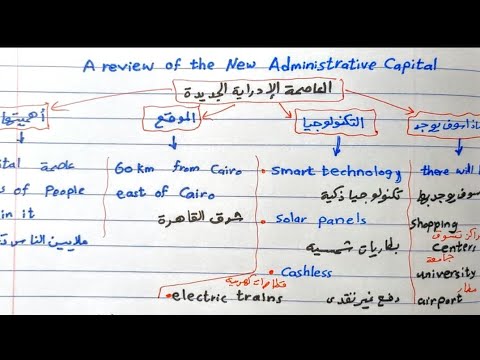 A review of the New Administrative Capital
العاصمة الإدراية الجديدة
أهميتها
ital عاصمة
s of People
in it
ملايين الناس
الموقع
60 km from Cairo
east of Cairo
شرق القاهرة
التكنولوجيا
• smart technology
تكنولوجيا ذكية
• solar panels
بطاريات شمسيه
• Cashless
دفع غير نقدى
قطارات كهربية
• electric trains
اذا سوف يوجد
there will
سوف يوجد بها
shopping
راكز تسوق
centers
جامعة
university
مطار
airport